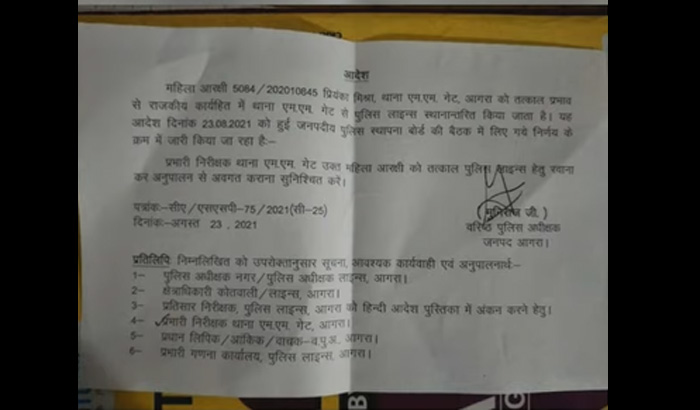 आदेश
महिला आरक्षी 5084/202010845 प्रियंका मिश्रा, थाना एम.एम. गेट, आगरा को तत्काल प्रभाव
से राजकीय कार्यहित में थाना एम.एम. गेट से पुलिस लाइन्स स्थानान्तरित किया जाता है। यह
आदेश दिनांक 23.08.2021 को हुई जनपदीय पुलिस स्थापना बोर्ड की बैठक में लिए गये निर्णय के
क्रम में जारी किया जा रहा हैः-
प्रभारी निरीक्षक थाना एम.एम. गेट उक्त महिला आरक्षी को तत्काल पुलिस लाइन्स हेतु रवाना
कर अनुपालन से अवगत कराना सुनिश्चित करें।
(मुनिराज जी. )
वरिष्ठ पुलिस अधीक्षक
जनपद आगरा।
पत्रांकः-सीए/एसएसपी-75/2021(सी-25)
दिनांकः-अगस्त 23, 2021
प्रतिलिपिः निम्नलिखित को उपरोक्तानुसार सूचना, आवश्यक कार्यवाही एवं अनुपालनार्थः-
1- पुलिस अधीक्षक नगर/पुलिस अधीक्षक लाइन्स, आगरा।
2- क्षेत्राधिकारी कोतवाली/लाइन्स, आगरा।
3- प्रतिसार निरीक्षक, पुलिस लाइन्स, आगरा को हिन्दी आदेश पुस्तिका में अंकन करने हेतु।
4- प्रभारी निरीक्षक थाना एम.एम. गेट, आगरा।
5- प्रधान लिपिक/आंकिक/वाचक-व.पु.अ. आगरा।
6- प्रभारी गणना कार्यालय, पुलिस लाइन्स, आगरा।